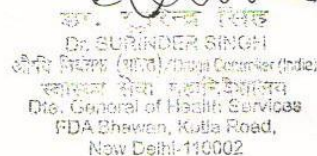 डा. सुरिन्दर सिंह
Dr. SURINDER SINGH
औषधि नियंत्रक (भारत)/Drugs Controller (India)
स्वास्थ्य सेवा महानिदेशालय
Dte. General of Health Services
FDA Bhawan, Kotla Road,
New Delhi-110002